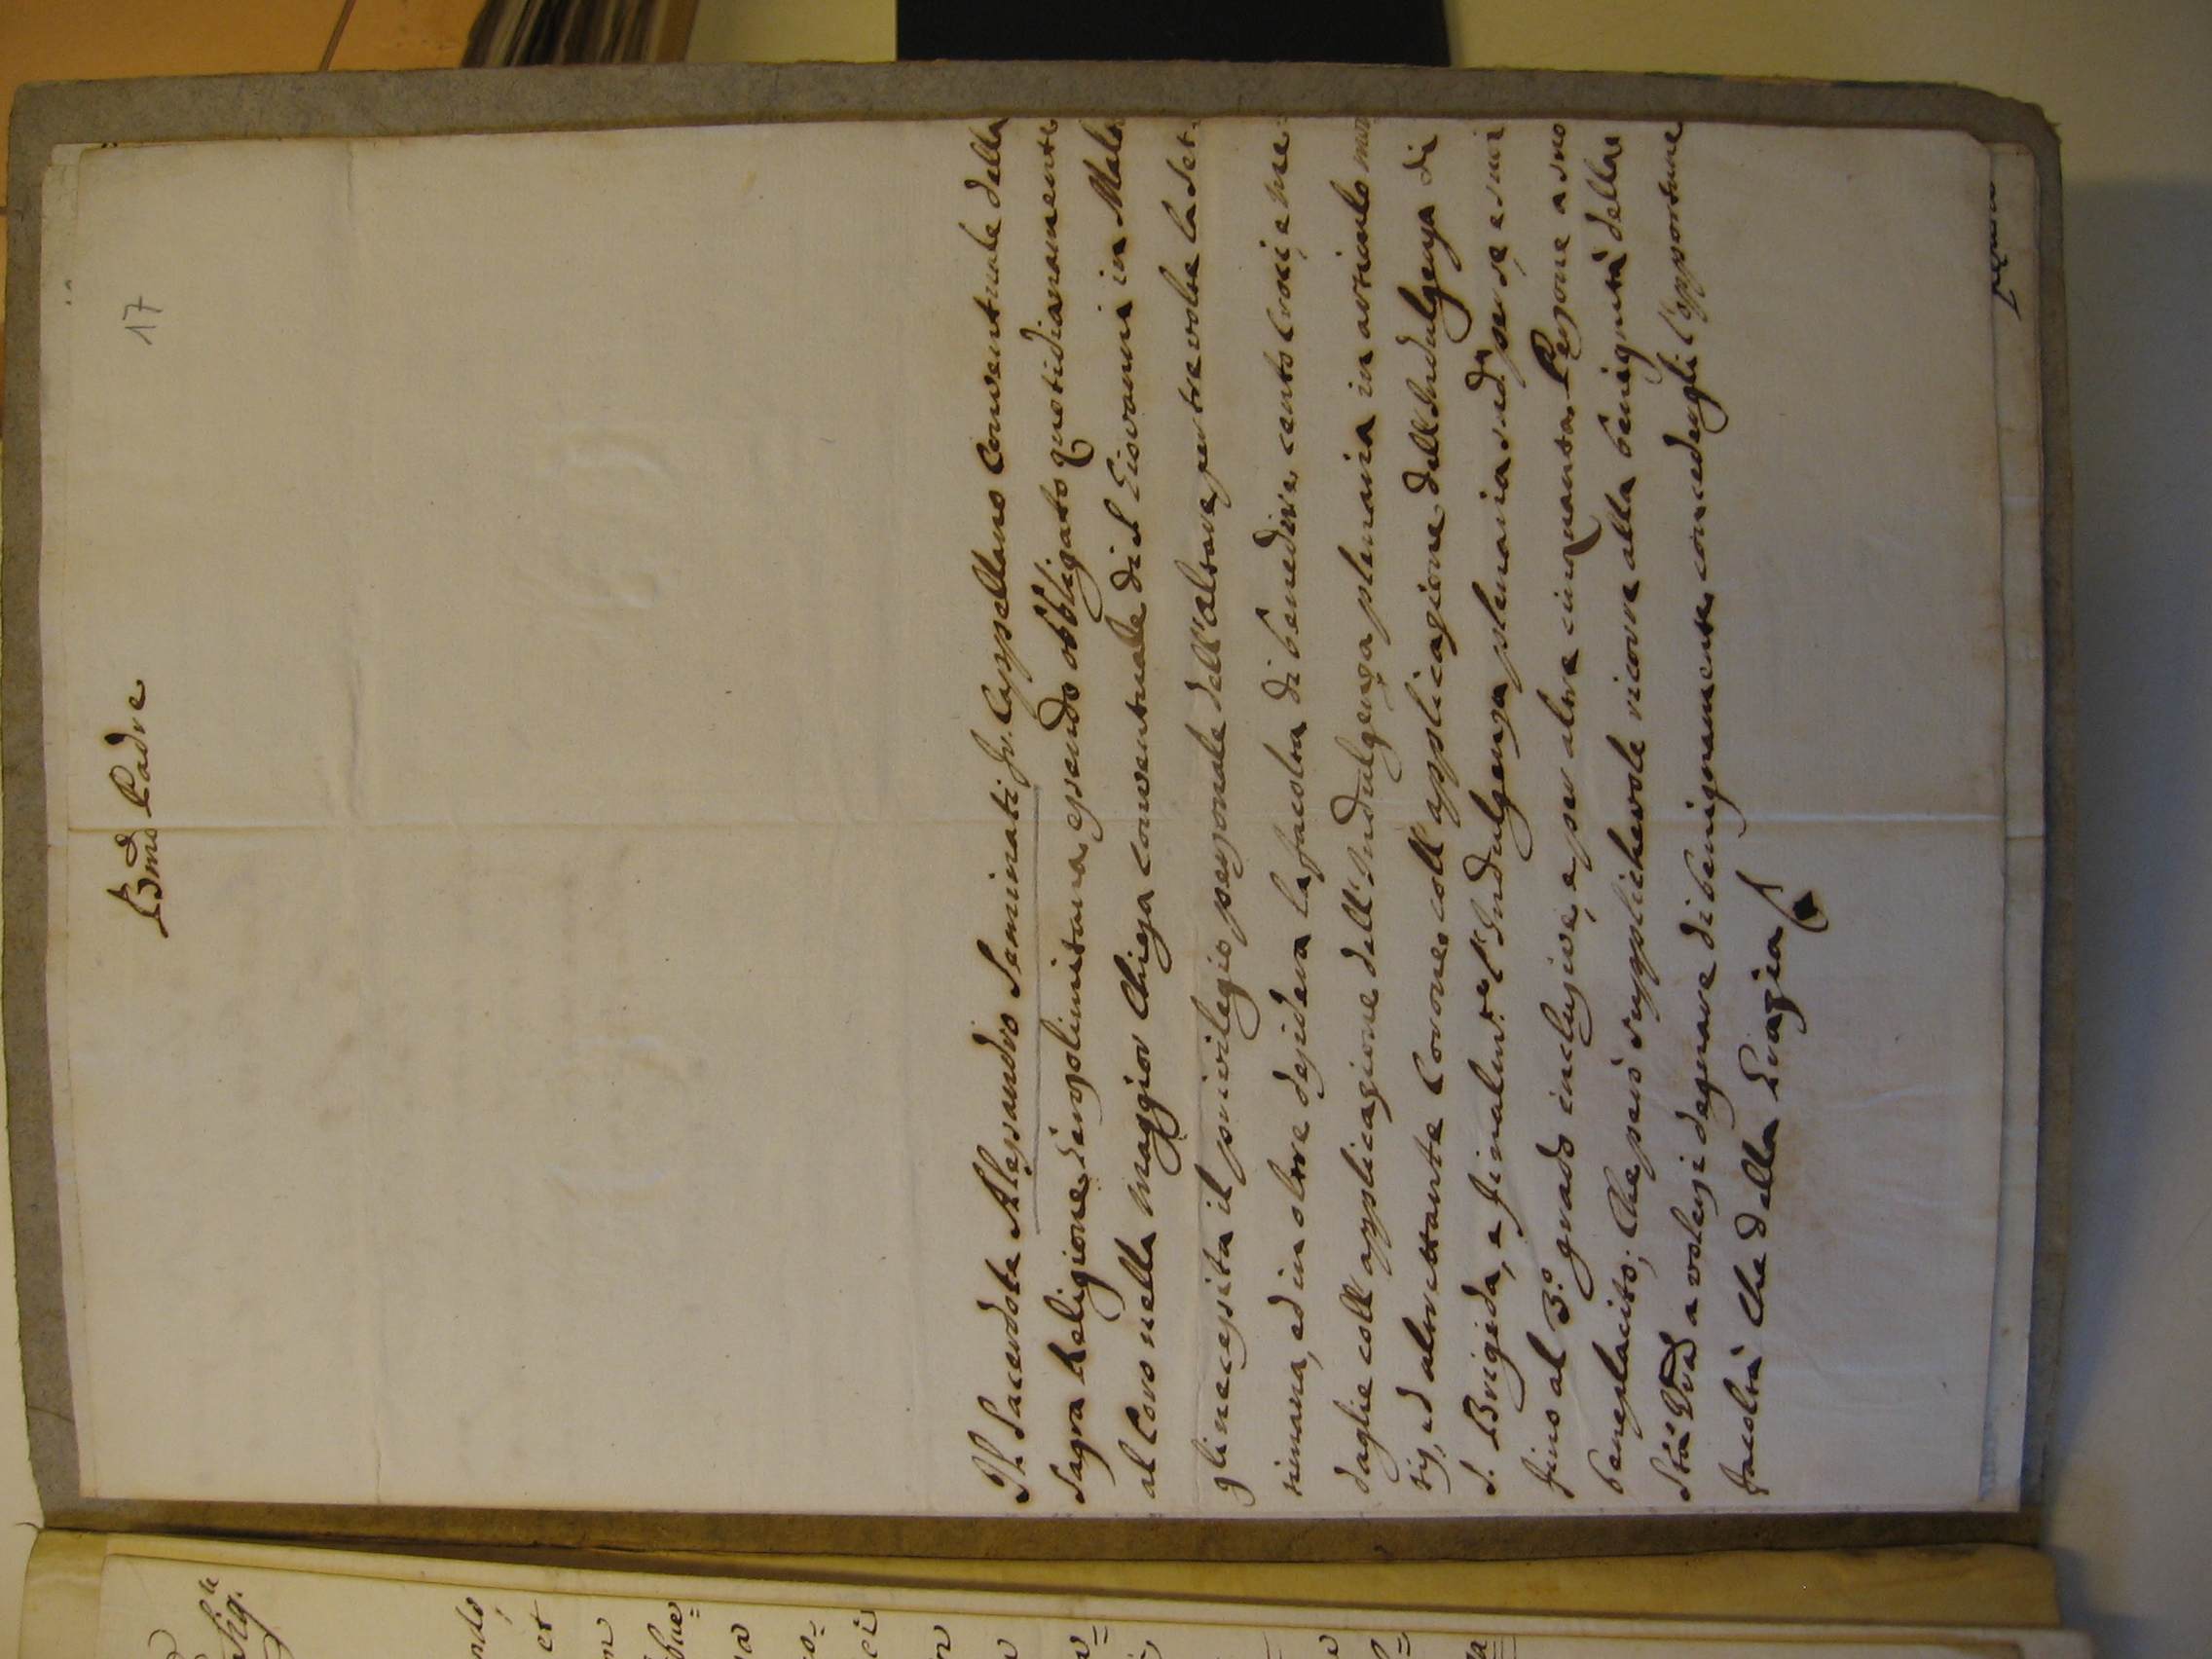 17
Bmo Padre
Il Sacerdote Alessandro Seminati fr. Cappellano Conventuale della
Sagra Religione Gerosolimitana essendo obbligato quotidianamente
al Coro nella maggior Chiesa conventuale di S. Giovanni in Malta
gli necessita il privilegio personale dell'altare per tre volte la set-
timana, ed in oltre desidera la facoltà di benedire cento Croci e me-
daglie coll applicazione dell'Indulgenza plenaria in articulo mor
tis, ed altrettante Corone coll applicazione dell'Indulgenza di
S. Brigida, e finalm.te l'Indulgenza plenaria sud.a per se e suoi
fino al 3.o grado inclusive, e per altre cinquanta Persone a suo
beneplacito; Che però supplichevole ricorre alla benignità della
Stà Vra a volersi degnare di benignamente concedergli l'opportune
facoltà Che della Grazia